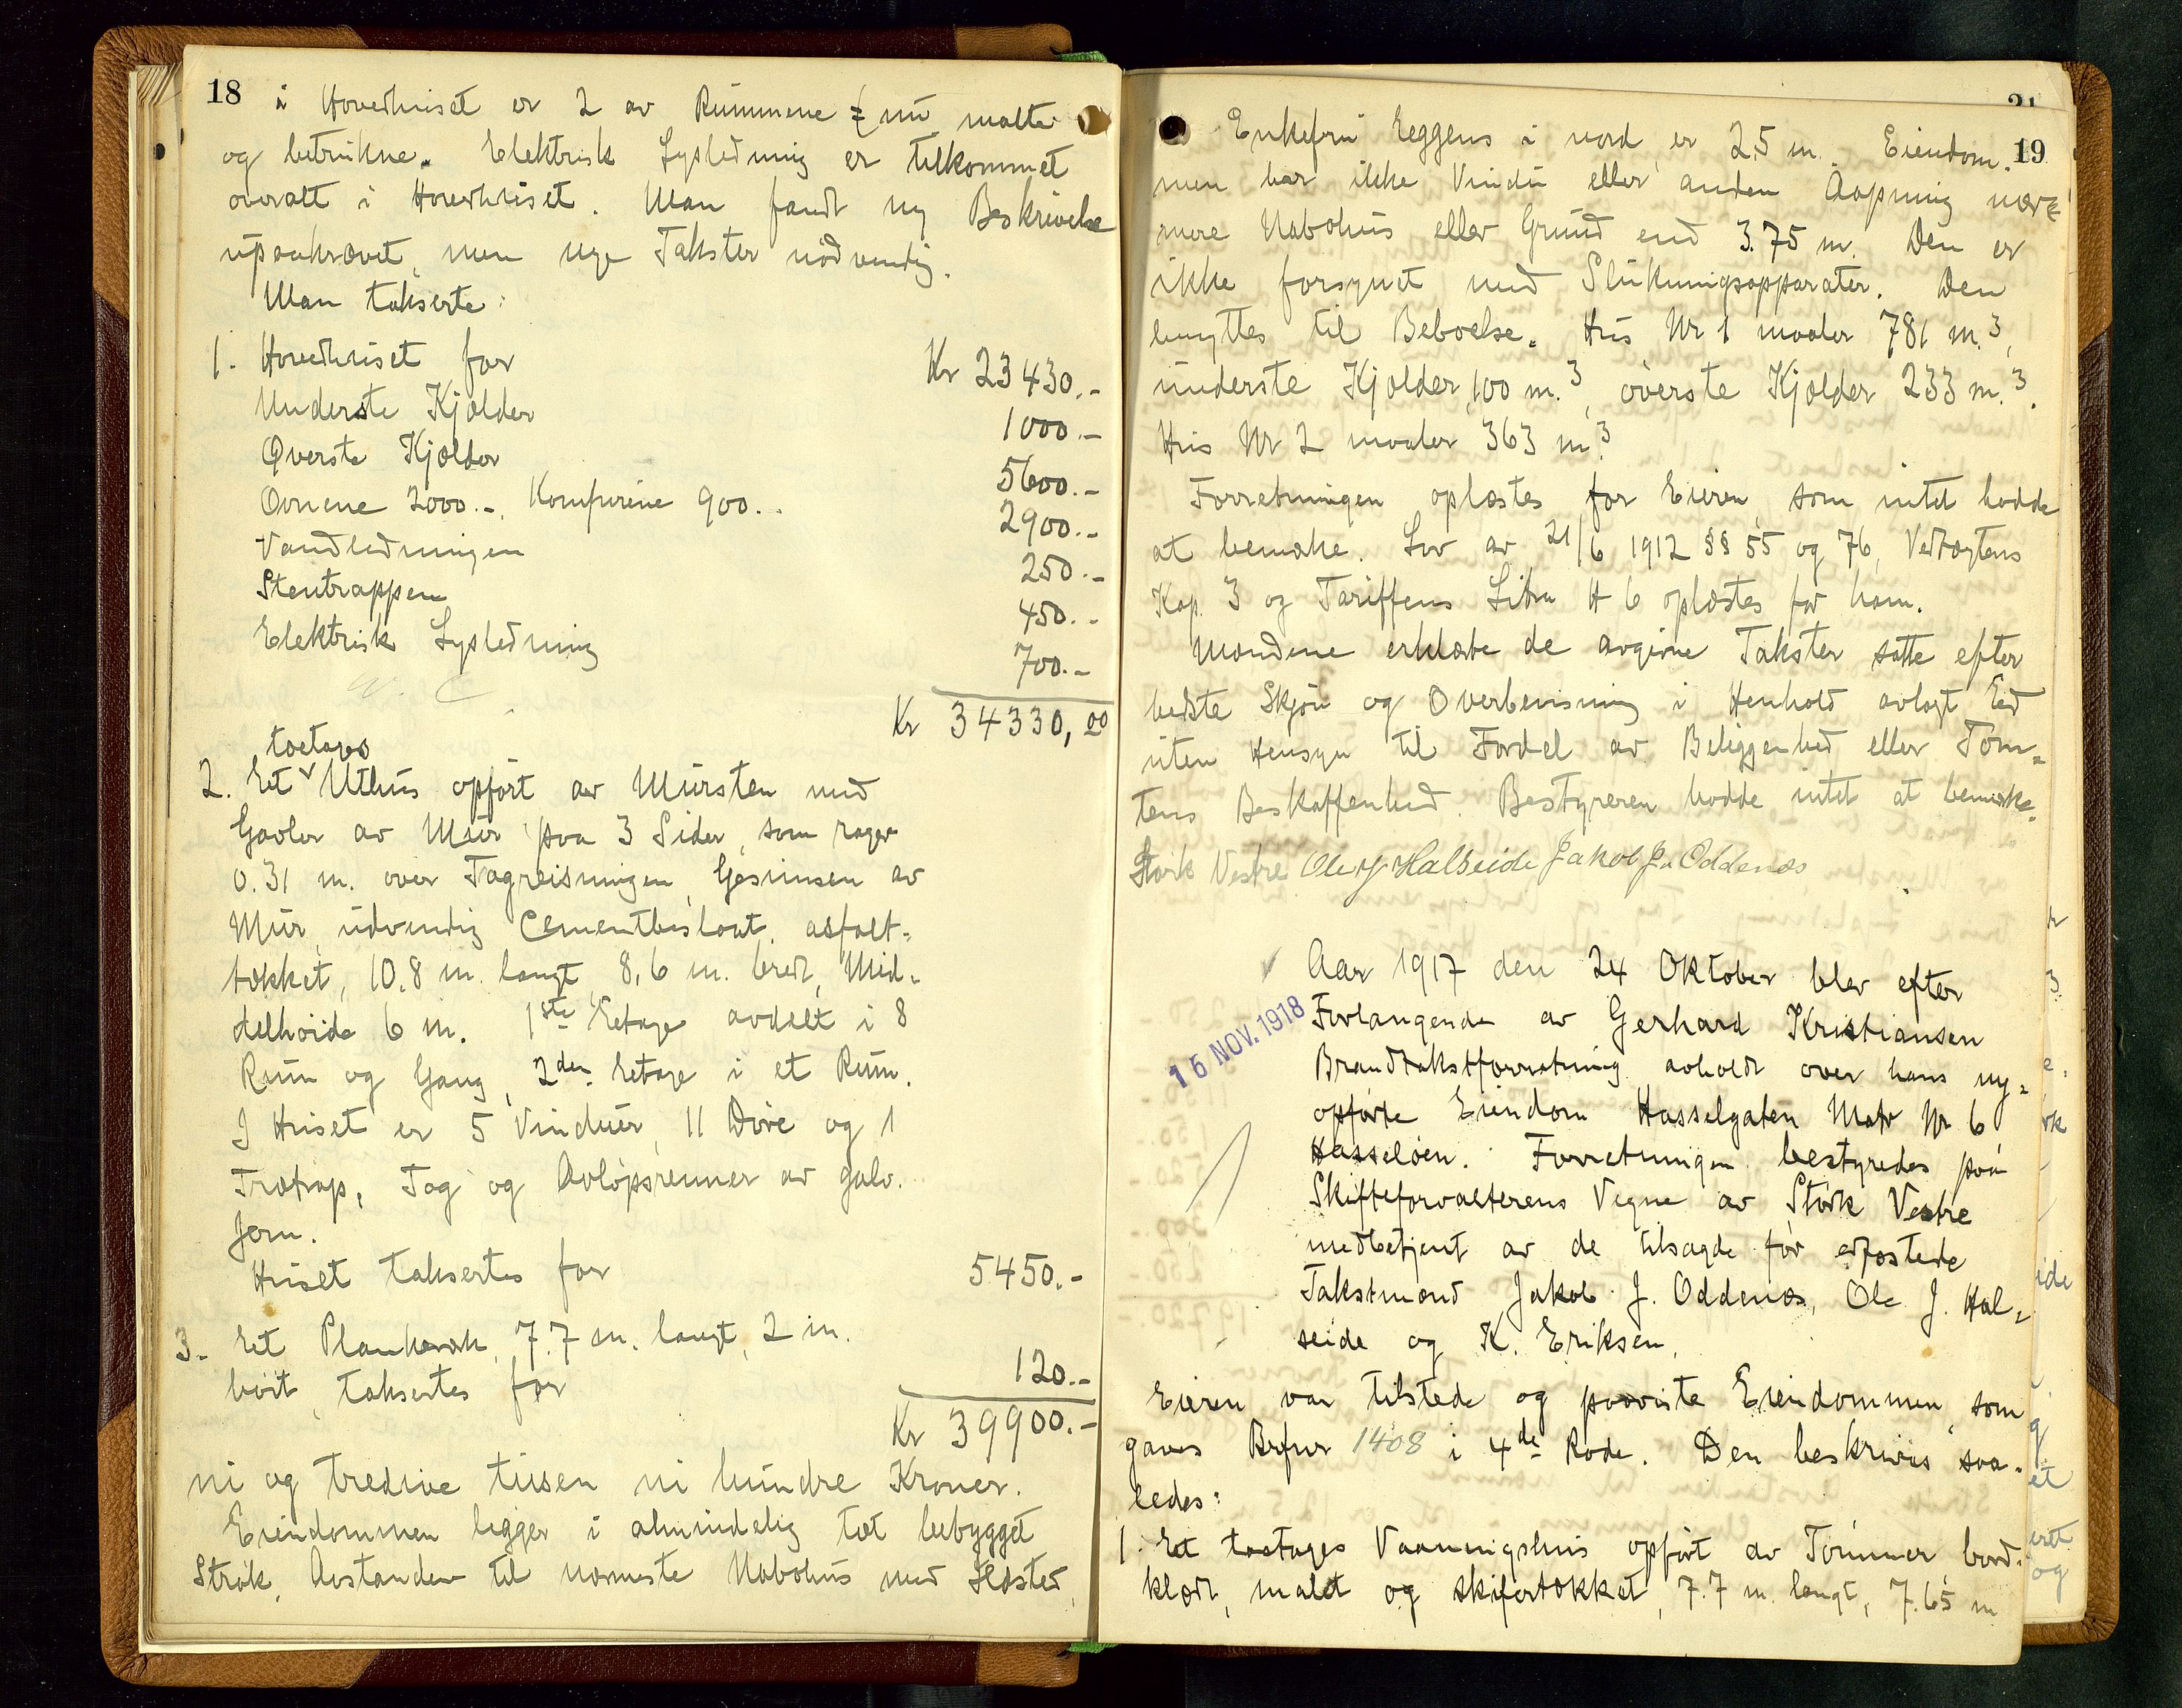 18
i Hovedhuset er 2 av Rummene nu malte
og betrukne. Elektrisk Lysledning er tilkommet
overalt i Hovedhuset. Man fandt ny Beskrivelse
upaakrævet, men nye Takster nødvendig.
Man takserte:
1. Hovedhuset for Kr 23430.-
Underste Kjælder 1000.-
Øverste Kjælder 5600.-
Ovnene 2000.-, Komfurene 900.- 2900.-
Vandledningen 250.-
Stentrappen 450.-
Elektrisk Lysledning 700.-
W. C
Kr 34330,00
toetages
2. Et Uthus opført av Mursten med
Gavler av Mur paa 3 Sider, som rager
0.31 m. over Tagreisningen, Gesimsen av
Mur, udvendig Cementbeslaat, asfalt-
tækket, 10.8 m. langt 8,6 m. bredt, Mid-
delhøide 6 m. 1ste Etage avdelt i 8
Rum og Gang, 2den Etage i et Rum.
I Huset er 5 Vinduer, 11 Døre og 1
Trætrap, Tag og Avløpsrenner av galv.
Jern.
Huset takseres for 5450.-
3. Et Plankeværk, 7.7 m. langt, 2 m.
høit, takseres for 120.-
Kr 39900.-
ni og tredive tusen ni hundre Kroner.
Eiendommen ligger i almindelig tæt bebygget
Strøk. Avstanden til nærmeste Nabohus med Ildsted,
19
Enkefru Eggens i nord er 2,5 m. Eiendom-
men har ikke Vindu eller anden Aapning nær-
mere Nabohus eller Grund end 3.75 m. Den er
ikke forsynet med Slukningsapparater. Den
benyttes til Beboelse. Hus Nr 1 maaler 781 m.3,
underste Kjælder 100 m.3, øverste Kjælder 233 m.3.
Hus Nr 2 maaler 363 m.3
Forretningen oplæstes for Eieren, som intet hadde
at bemærke. Lov av 21/6 1912 §§ 55 og 76, Vedtægtens
Kap. 3 og Tariffens Litra H 6 oplæstes for ham.
Mændene erklærte de avgivne Takster satte efter
bedste Skjøn og Overbevisning i Henhold avlagt Ed
uten Hensyn til Fordel av Beliggenhed eller Tom-
tens Beskaffenhed. Bestyreren hadde intet at bemærke.
Størk Vestre Ole J Halseide Jakob J. Oddenæs
15 NOV. 1918
Aar 1917 den 24 Oktober blev efter
Forlangende av Gerhard Kristiansen
Brandtakstforretning avholdt over hans ny-
opførte Eiendom Hasselgaten Matr Nr 6
Hasseløen. Forretningen bestyredes paa
Skifteforvalterens Vegne av Størk Vestre
medbetjent av de tilsagde før edfæstede
Takstmænd Jakob J. Oddenæs, Ole J. Hal-
seide og K. Eriksen.
Eieren var tilstede og paaviste Eiendommen, som
gaves Brfnr 1408 i 4de Rode. Den beskrives saa-
ledes:
1. Et toetages Vaaningshus opført av Tømmer bord-
klædt, malet og skifertækket, 7.7 m. langt, 7.65 m